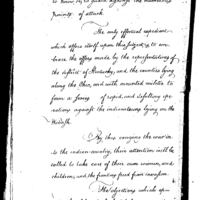 to them, to guard against the numerous
points of attack.
The only efficient expedient
which offers itself upon this subject, is to em
brace the offers made by the representatives of
the district of Kentucky, and the counties lying
along the Ohio, and with mounted militia to
form a of rapid and desultory ope
rations against the indian towns lying on the
Wabash.
By thus carrying the war in
to the indian country, their attention will be
called to take care of their own women, and
children, and the frontiers freed from invasion.
The objections which